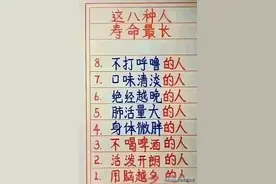 这八种人
寿命最长
8. 不打呼噜的人
7. 口味清淡的人
6. 绝经越晚的人
5. 肺活量大的人
4. 身体微胖的人
3. 不喝啤酒的人
2. 活泼开朗的人
1. 用脑越多的人